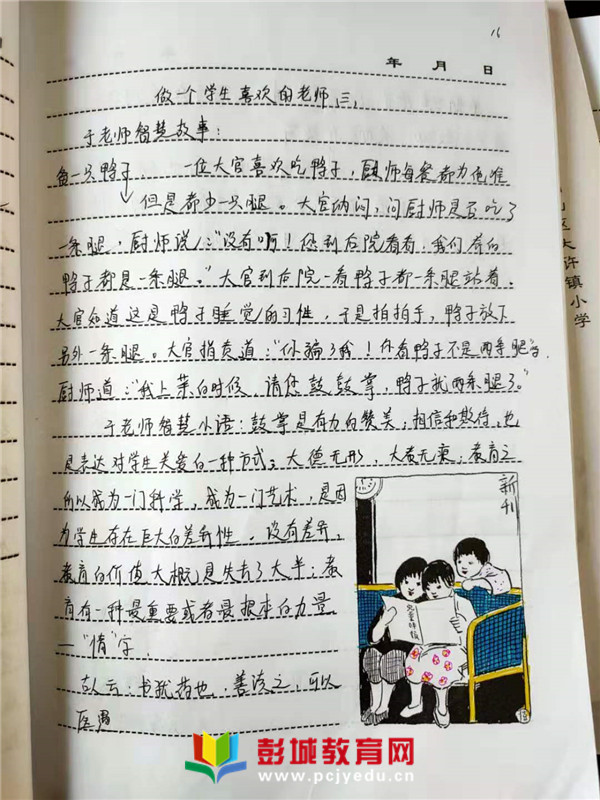 16
年 月 日
做一个学生喜欢的老师 三、
于老师智慧故事：
一位大官喜欢吃鸭子，厨师每餐都为他准
每一只鸭子
但是都少一只腿。大官纳闷，问厨师是否吃了
一条腿，厨师说：“没有啊！您到后院看看，我们养的
鸭子都是一条腿。”大官到后院一看鸭子都一条腿站着，
大官知道这是鸭子睡觉的习性，于是拍拍手，鸭子放下
另外一条腿。大官指责道：“你骗了我！你看鸭子不是两条腿
厨师道：“我上菜的时候，请您鼓鼓掌，鸭子就两条腿了。”
于老师智慧小语：鼓掌是有力的赞美，相信和期待，也
是表达对学生关爱的一种方式。大德无形，大教无痕；教育之
所以成为一门科学，成为一门艺术，是因
为学生存在巨大的差异性，没有差异，
教育的价值大概是失去了大半；教
育有一种最重要或者最根本的力量
—“情”字．
古人云：书犹药也，善读之，可以
医愚
新刊
区大许镇小学
彭城教育网
www.pcjyedu.cn